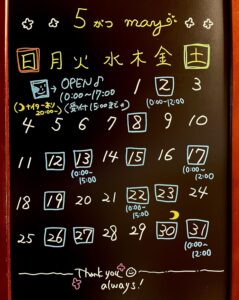 5がつ may
日 月 火 水 木 金 土
→ OPEN♪
10:00~17:00
(受付15:00までの)
1 2 3
10:00~12:00
4 5 6 7 8 9 10
11 12 13 14 15 16 17
10:00~15:00
10:00~12:00
18 19 20 21 22 23 24
10:00~15:00
25 26 27 28 29 30 31
10:00~12:00
Thank you
always!